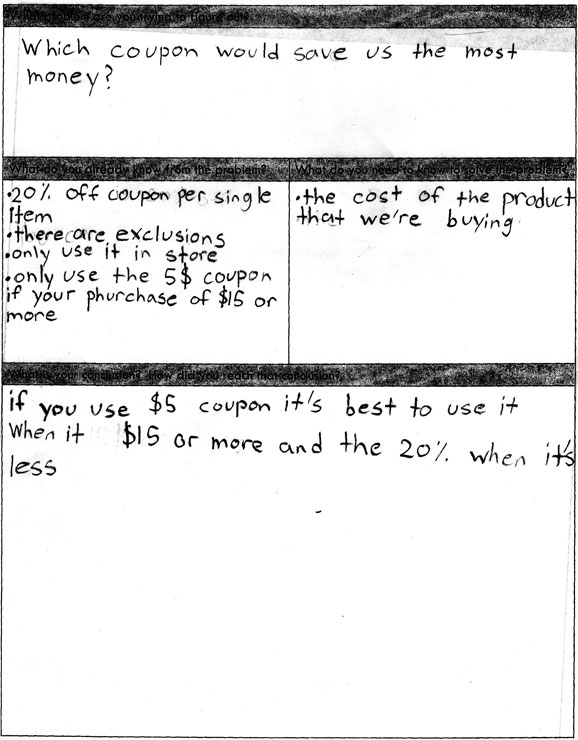 What problem are you trying to figure out?
Which coupon would save us the most
money?
What do you already know from the problem?
What do you need to know to solve the problem?
•20% off coupon per single
Item
•there are exclusions
•only use it in store
•only use the 5$ coupon
if your phurchase of $15 or
more
•the cost of the product
that we're buying
What is your conclusion? How did you reach that conclusion?
if you use $5 coupon it's best to use it
When it $15 or more and the 20% when it's
less